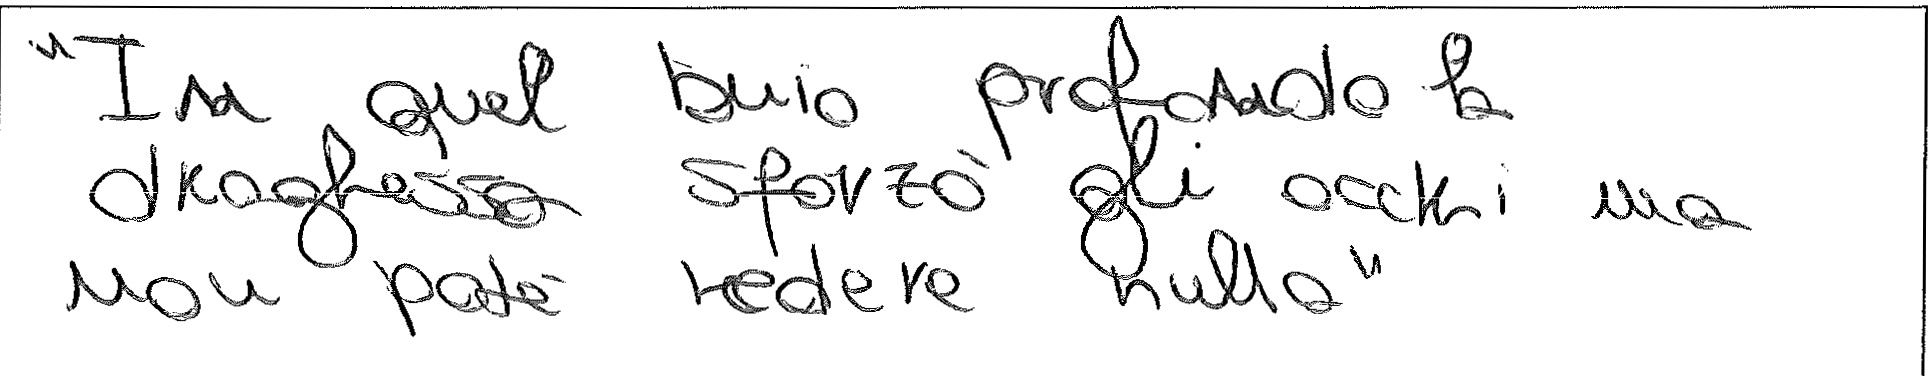 "In quel buio profondo la
draghessa sforzò gli occhi ma
non poté vedere nulla"